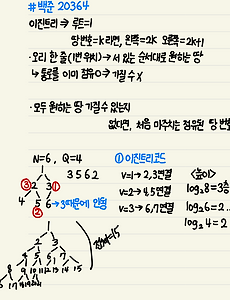 #백준 20364
이진트리 ⇒ 루트=1
땅번호=K라면, 왼쪽=2K 오른쪽=2K+1
· 오리 한 줄(1번 위치) → 서 있는 순서대로 원하는 땅
↳ 통로를 이미 점유○ → 가질 수 X
· 모두 원하는 땅 가질 수 있는지
없다면, 처음 마주치는 점유된 땅 번호
N=6, Q=4
3 5 6 2
1
③ 2 3 ①
4 5 6 → 3때문에 안됨
②
① 이진트리코드
V=1 → 2,3연결
V=2 → 4,5연결
V=3 → 6,7연결
<높이>
log₂8=3층
log₂6=2..
log₂4=2
1
2 3
4 5 6 7
8 9 10 11 12 13 14 15
=15